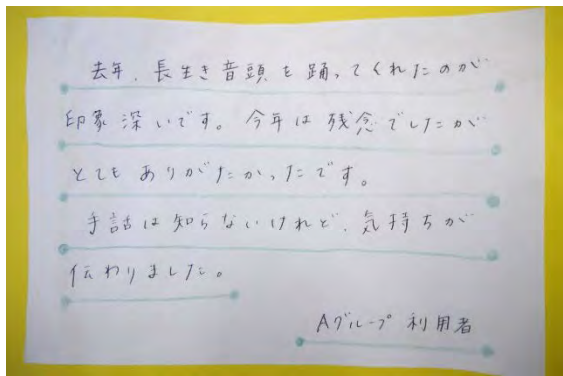 去年、長生き音頭を踊ってくれたのが
印象深いです。今年は残念でしたが
とてもありがたかったです。
手話は知らないけれど、気持ちが
伝わりました。
Aグループ 利用者